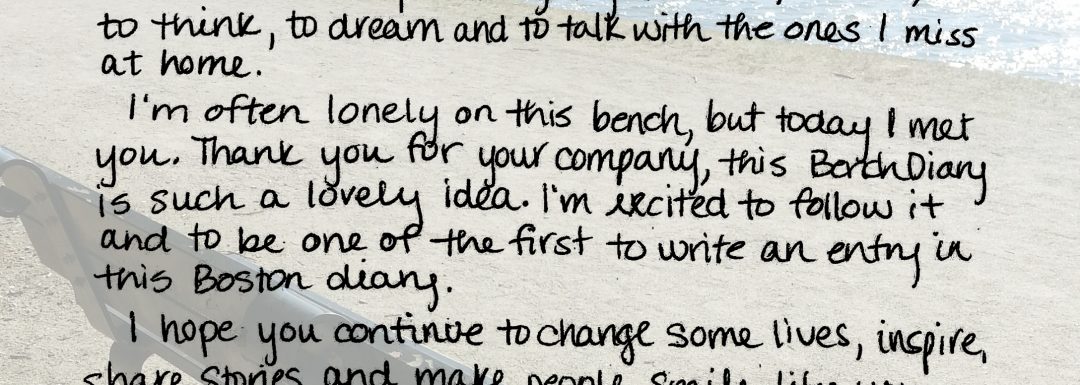 to think, to dream and to talk with the ones I miss
at home.
I'm often lonely on this bench, but today I met
you. Thank you for your company, this BenchDiary
is such a lovely idea. I'm excited to follow it
and to be one of the first to write an entry in
this Boston diary.
I hope you continue to change some lives, inspire,
share stories and make people smile like